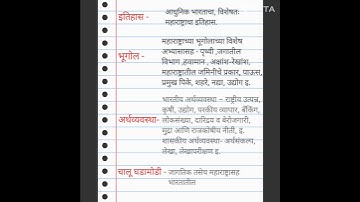 इतिहास - आधुनिक भारताचा, विशेषत:
महाराष्ट्राचा इतिहास.
महाराष्ट्राच्या भूगोलाच्या विशेष
भूगोल - अभ्यासासह - पृथ्वी ,जगातील
विभाग ,हवामान , अक्षांश-रेखांश,
महाराष्ट्रातील जमिनीचे प्रकार, पाऊस,
प्रमुख पिके, शहरे, नद्या, उद्योग इ.
भारतीय अर्थव्यवस्था – राष्ट्रीय उत्पन्न,
कृषी, उद्योग, परकीय व्यापार, बँकिंग,
अर्थव्यवस्था- लोकसंख्या, दारिद्रय व बेरोजगारी,
मुद्रा आणि राजकोषीय नीती, इ.
शासकीय अर्थव्यवस्था- अर्थसंकल्प,
लेखा, लेखापरीक्षण इ.
चालू घडामोडी - जागतिक तसेच महाराष्ट्रासह
भारतातील